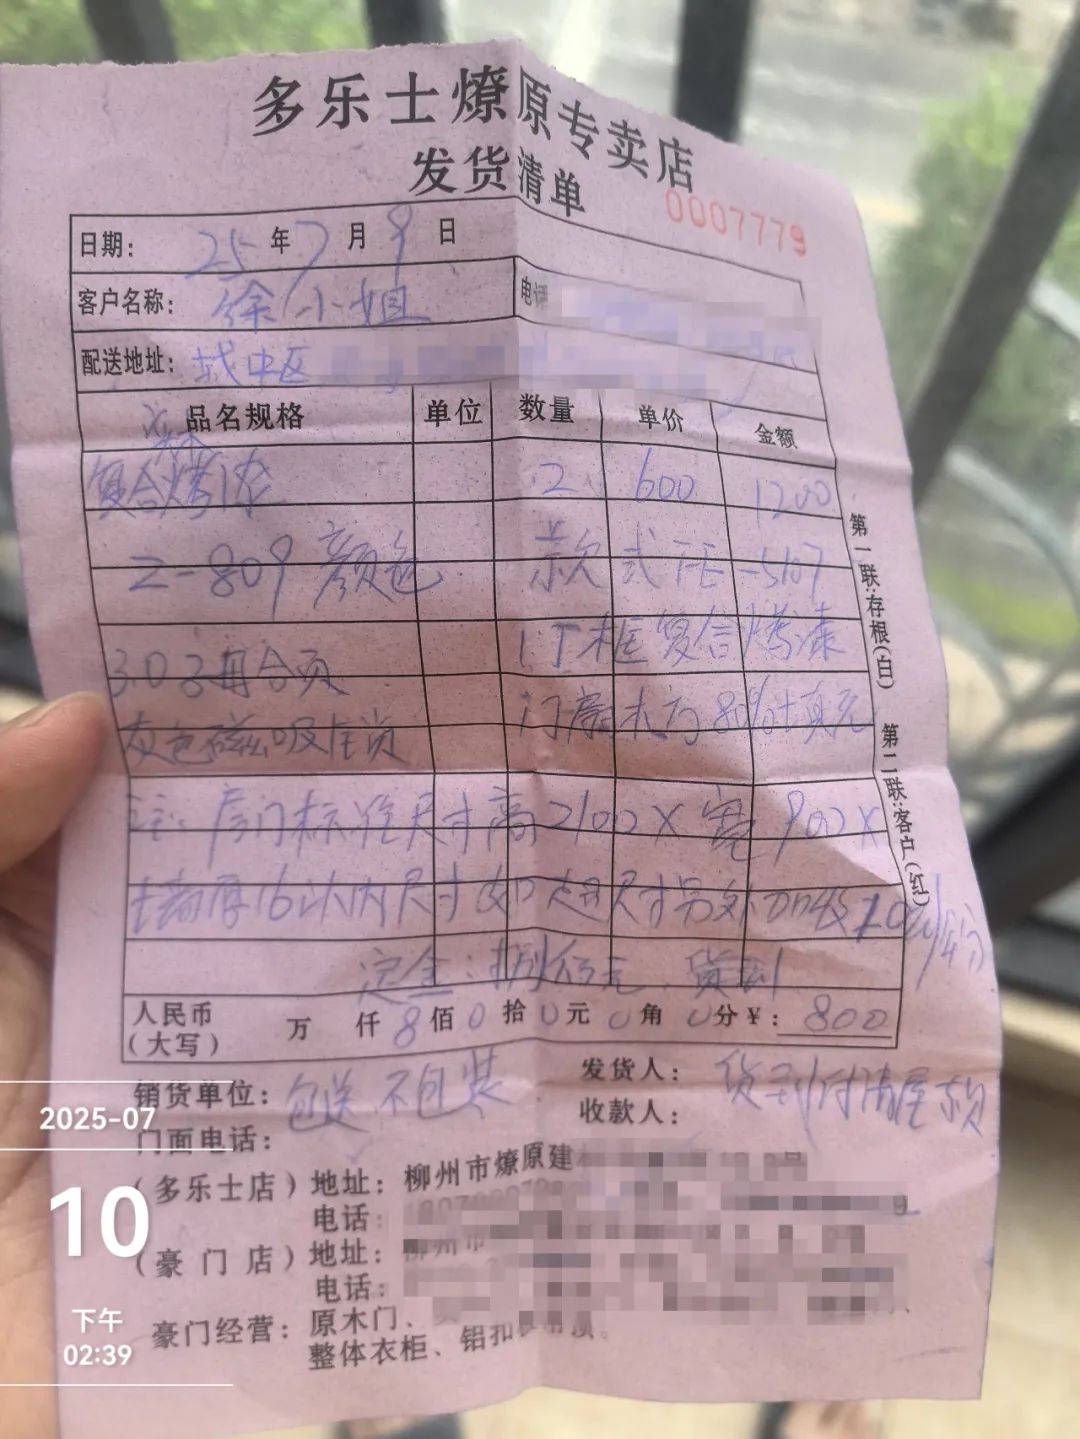 多乐士燎原专卖店
发货清单
0007779
日期： 25 年 7 月 9 日
客户名称： 徐小姐 电话
配送地址： 城中区
品名规格 单位 数量 单价 金额
复合烤漆 2 600 1200
Z-809 颜色 款式 -5107
303 合页 T框复合烤漆
灰色磁吸 门扇 填充
注：房门标准尺寸高2100×宽900×
墙厚16以内尺寸如超尺寸另外
定金：捌佰元、货到
人民币（大写） 万 仟 8 佰 0 拾 0 元 0 角 0 分 ¥： 800
销货单位： 包送不包装 发货人： 货到付清尾款
收款人：
门面电话：
（多乐士店）地址：柳州市燎原建
电话：
（豪门店）地址：柳州市
电话：
豪门经营：原木门、
整体衣柜、铝扣
第一联：存根（白）
第二联：客户（红）
2025-07
10
下午
02:39